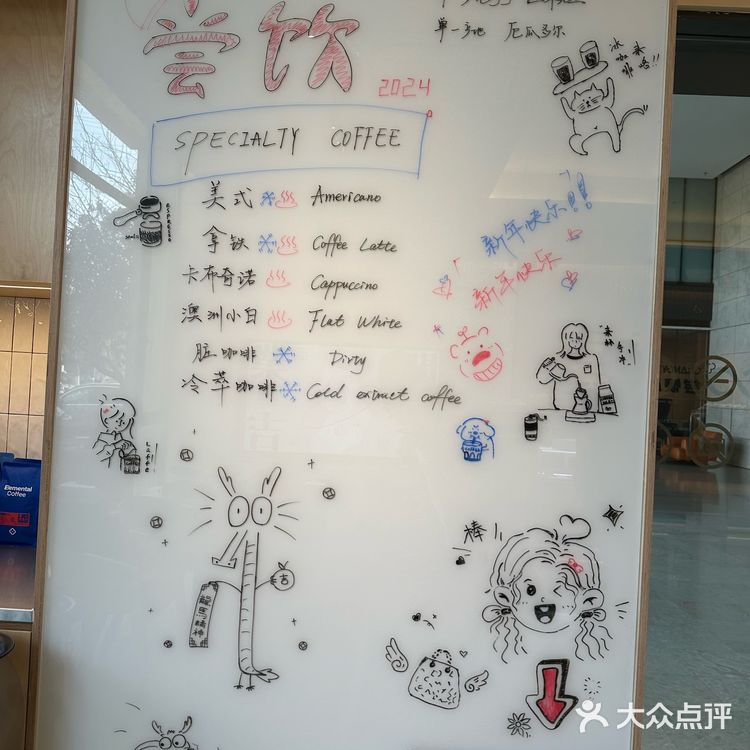 尝饮
单一产地 厄瓜多尔
2024
SPECIALTY COFFEE
美式 Americano
拿铁 Coffee Latte
卡布奇诺 Cappuccino
澳洲小白 Flat White
脏咖啡 Dirty
冷萃咖啡 Cold extract coffee
新年快乐!!!
新年快乐
ESPRESSO
COFFEE
吉
龍馬精神
棒
Elemental
Coffee
大众点评